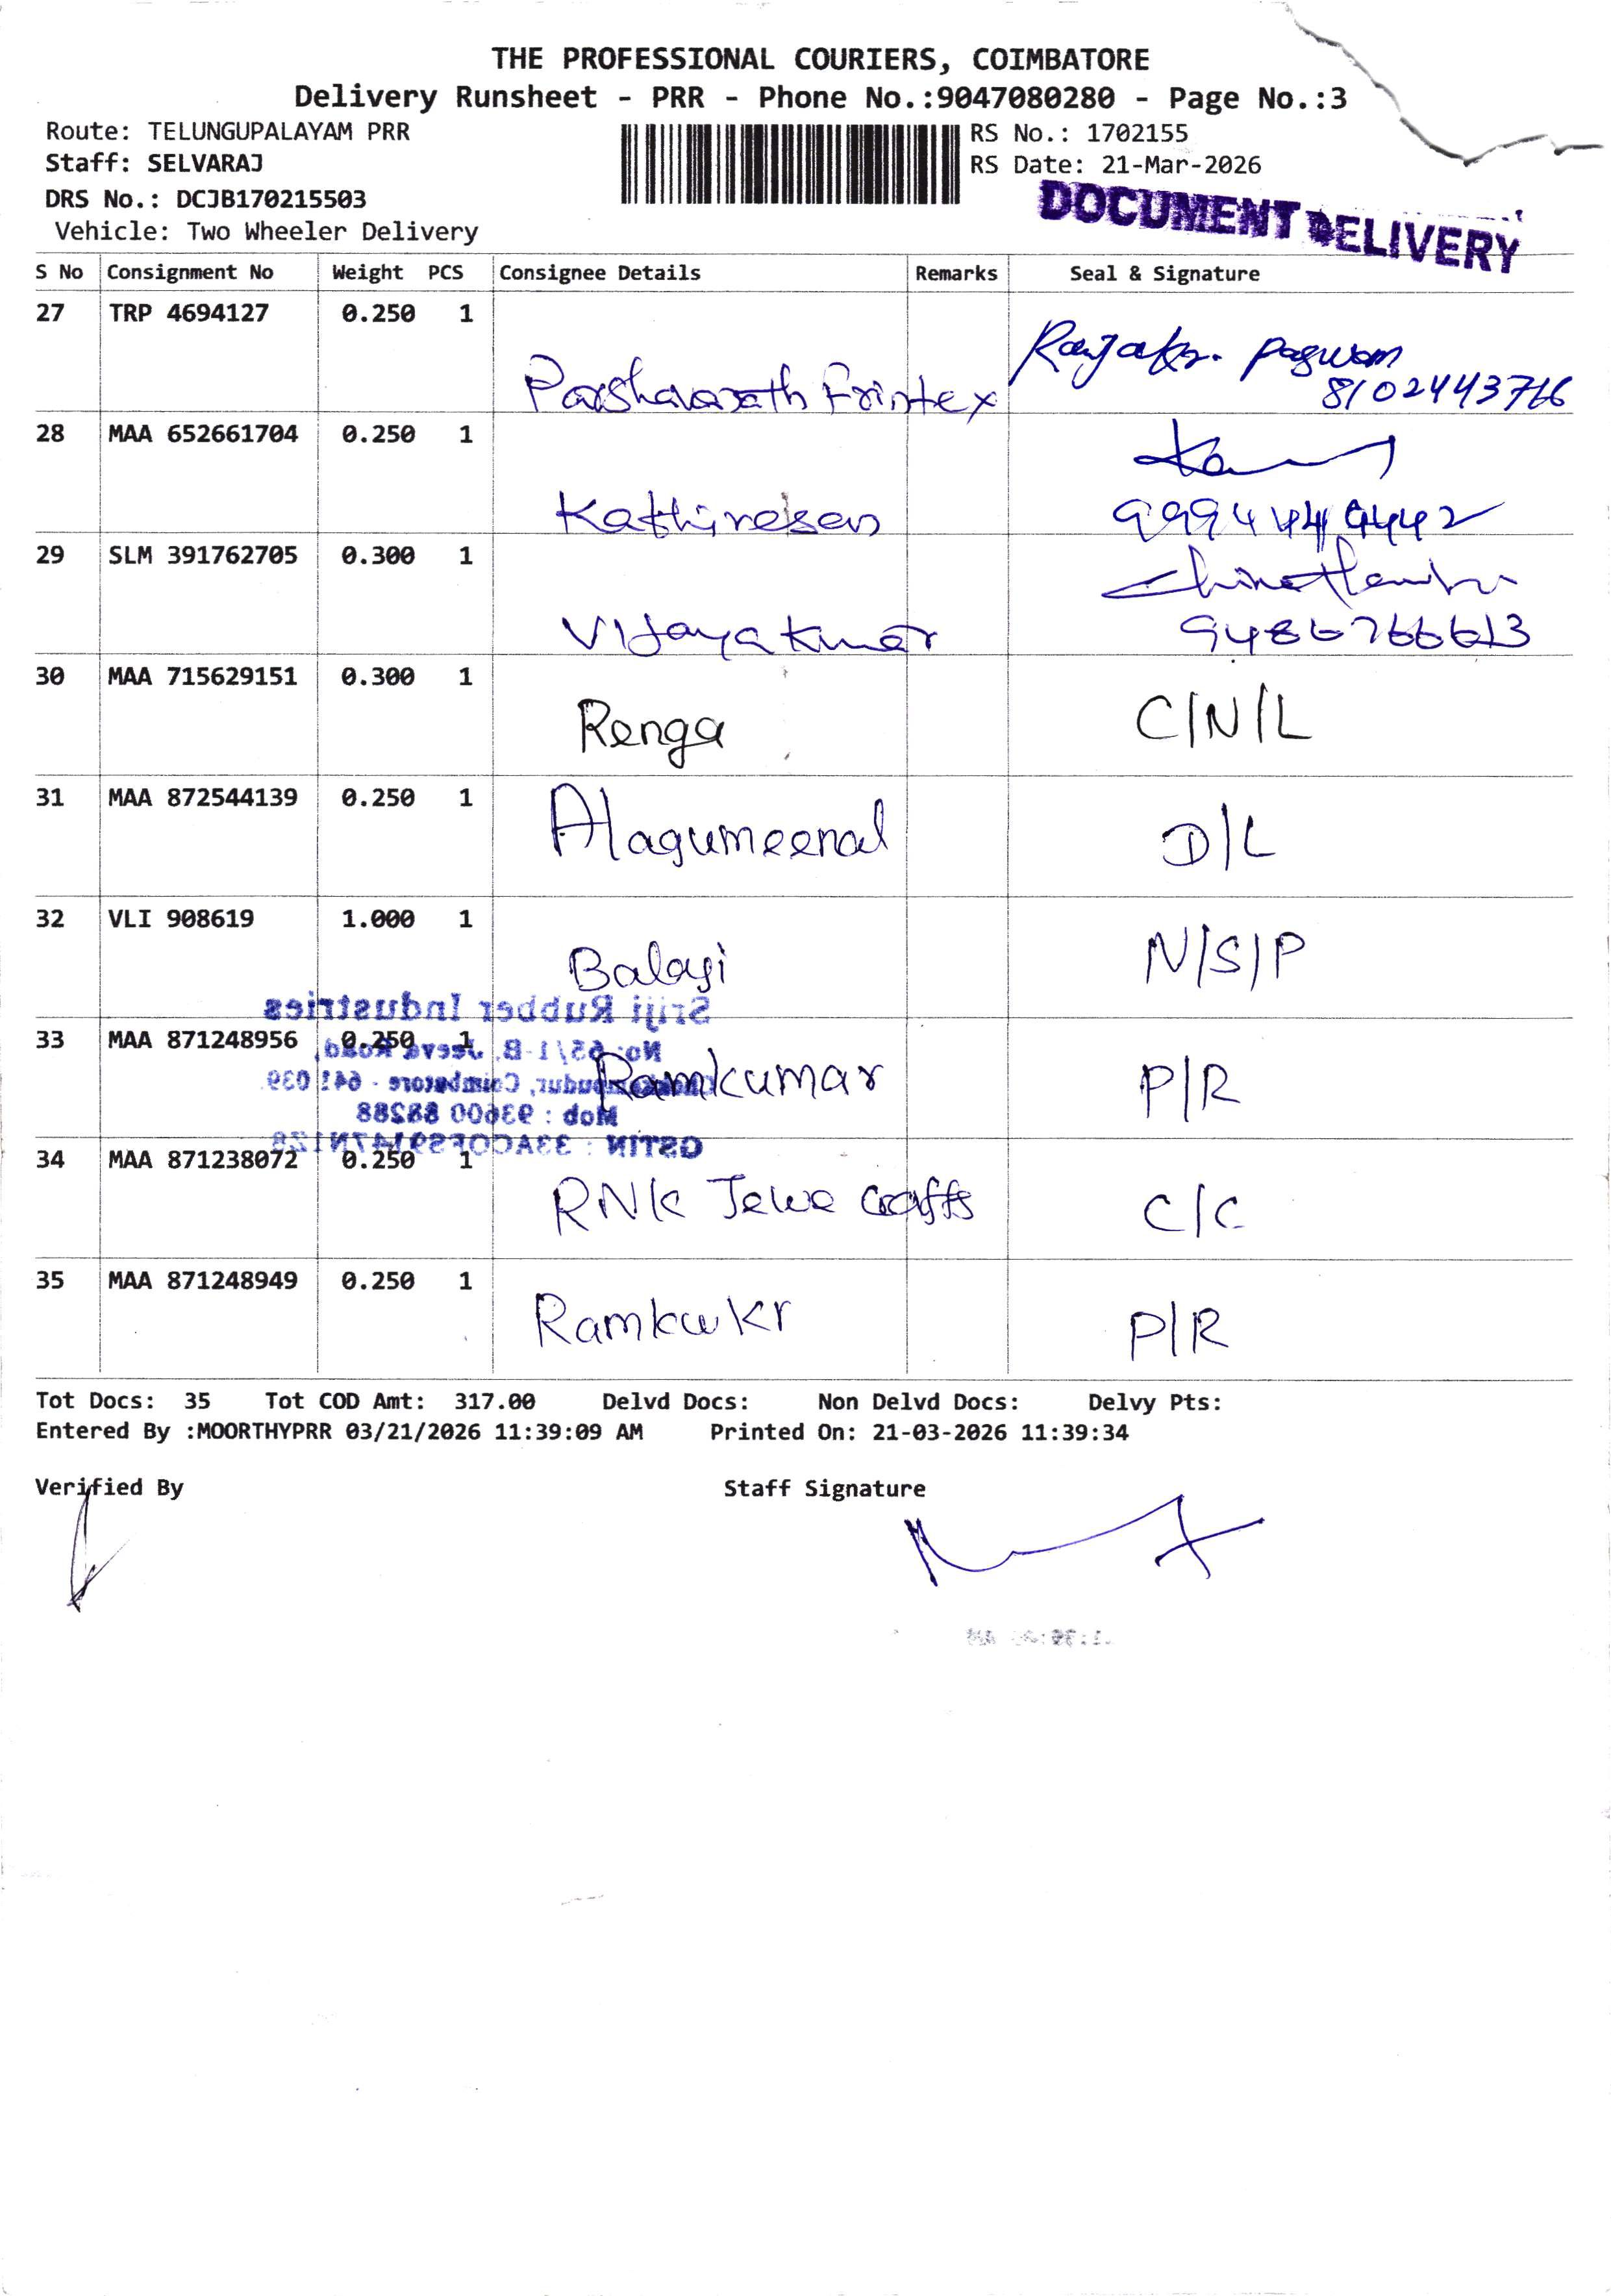 THE PROFESSIONAL COURIERS, COIMBATORE
Delivery Runsheet - PRR - Phone No.:9047080280 - Page No.:3
Route: TELUNGUPALAYAM PRR
RS No.: 1702155
Staff: SELVARAJ
RS Date: 21-Mar-2026
DRS No.: DCJB170215503
DOCUMENT DELIVERY
Vehicle: Two Wheeler Delivery
S No Consignment No Weight PCS Consignee Details Remarks Seal & Signature
27 TRP 4694127 0.250 1
8102443766
28 MAA 652661704 0.250 1
Kathiresan
29 SLM 391762705 0.300 1
Vijayakumar
30 MAA 715629151 0.300 1
Renga C/N/L
31 MAA 872544139 0.250 1
Alagumeenal D/L
32 VLI 908619 1.000 1
Balaji N/S/P
Sriji Rubber Industries
33 MAA 871248956 0.250 1
No: 65/1-B, Jeeva Road,
Ramkumar P/R
Coimbatore - 641 039.
Mob : 93600 88288
GSTIN :
34 MAA 871238072 0.250 1
RNK Jewe Crafts C/C
35 MAA 871248949 0.250 1
P/R
Tot Docs: 35 Tot COD Amt: 317.00 Delvd Docs: Non Delvd Docs: Delvy Pts:
Entered By :MOORTHYPRR 03/21/2026 11:39:09 AM Printed On: 21-03-2026 11:39:34
Verified By Staff Signature